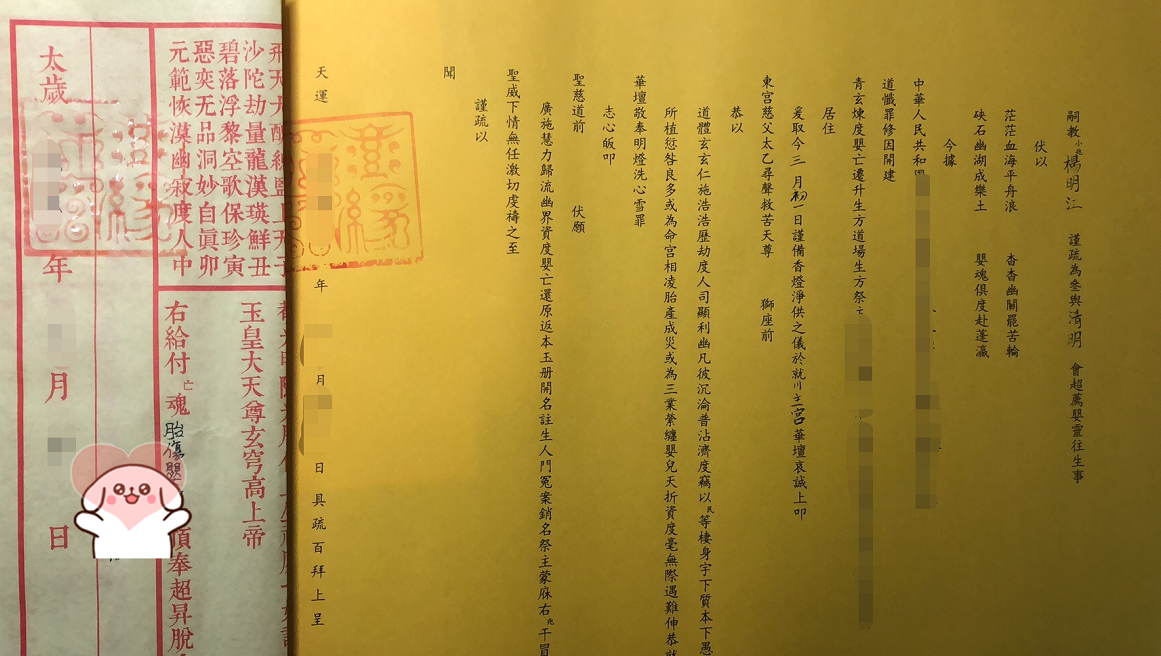 嗣教小兆楊明江 謹疏為參與清明 會超薦嬰靈往生事
伏以
茫茫血海平舟浪 杳杳幽關罷苦輪
硤石幽湖成樂土 嬰魂俱度赴蓬瀛
今據
中華人民共和
道懺罪修因開建
青玄煉度嬰亡遷升生方道場生方祭
居住
爰取今三月初一日謹備香燈淨供之儀於就 宮華壇哀誠上叩
東宮慈父太乙尋聲救苦天尊 獅座前
恭以
道體玄玄仁施浩浩歷劫度人司顯利幽凡彼沉淪普沾濟度竊以民等棲身宇下質本下愚
所植愆咎良多或為命宮相凌胎產成災或為三業縈纏嬰兒夭折資度毫無際遇難伸恭就
華壇敬奉明燈洗心雪罪
志心皈叩
聖慈道前 伏願
廣施慧力歸流幽界資度嬰亡還原返本玉册開名註生人門冤案銷名祭主蒙庥右兆干冒
聖威下情無任激切虔禱之至
謹疏以
聞
天運 年 月 日具疏百拜上呈
子
沙陀劫量龍漢瑛鮮丑
碧落浮黎空歌保珍寅
惡奕无品洞妙自真卯
元範恢漠幽寂度人中
玉皇大天尊玄穹高上帝
右給付亡魂胎傷嬰 頂奉超昇脫
太歲 年 月 日